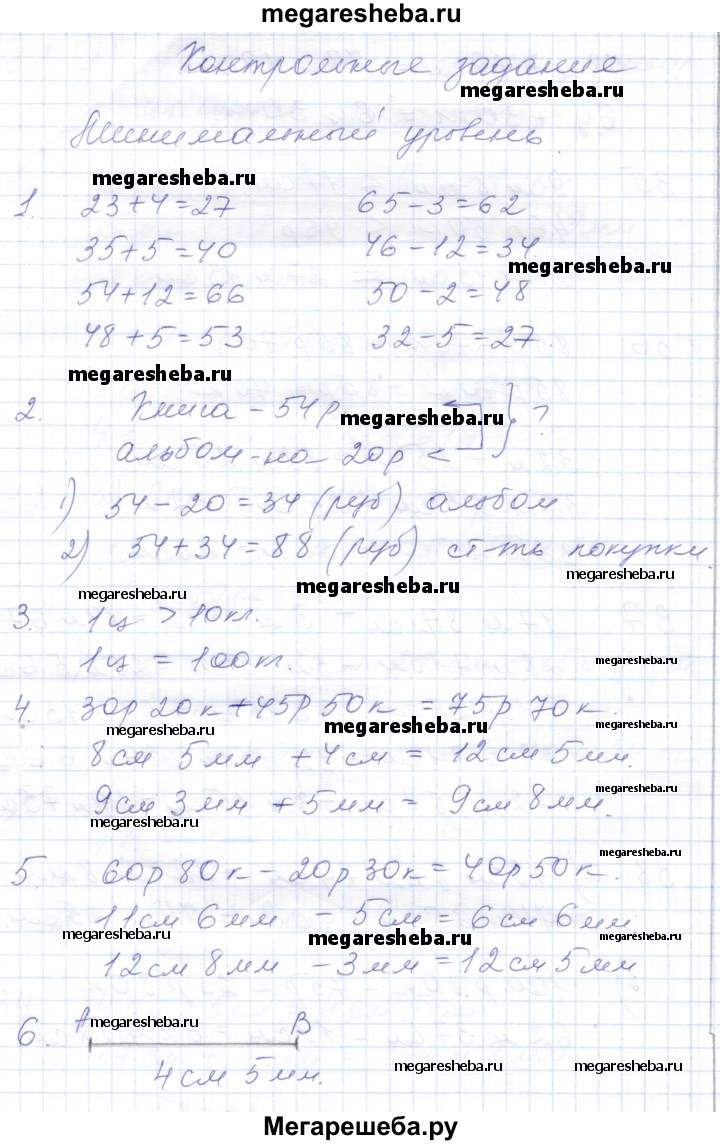 megaresheba.ru
Контрольные задания
megaresheba.ru
Минимальный уровень
megaresheba.ru
1. 23+4=27 65-3=62
35+5=40 46-12=34
megaresheba.ru
54+12=66 50-2=48
48+5=53 32-5=27.
megaresheba.ru
2. Книга - 54р megaresheba.ru } ?
альбом - на 20р <
1) 54-20=34 (руб) альбом
2) 54+34=88 (руб) ст-ть покупки.
megaresheba.ru
megaresheba.ru megaresheba.ru
3. 1ц > 10кг.
1ц = 100кг. megaresheba.ru
4. 30р 20к + 45р 50к = 75р 70к.
megaresheba.ru megaresheba.ru
8см 5мм + 4см = 12см 5мм.
megaresheba.ru
9см 3мм + 5мм = 9см 8мм.
megaresheba.ru
megaresheba.ru
5. 60р 80к - 20р 30к = 40р 50к.
11см 6мм - 5см = 6см 6мм
megaresheba.ru megaresheba.ru megaresheba.ru
12см 8мм - 3мм = 12см 5мм.
6. A megaresheba.ru B
4см 5мм.
megaresheba.ru megaresheba.ru
Мегарешеба.ру